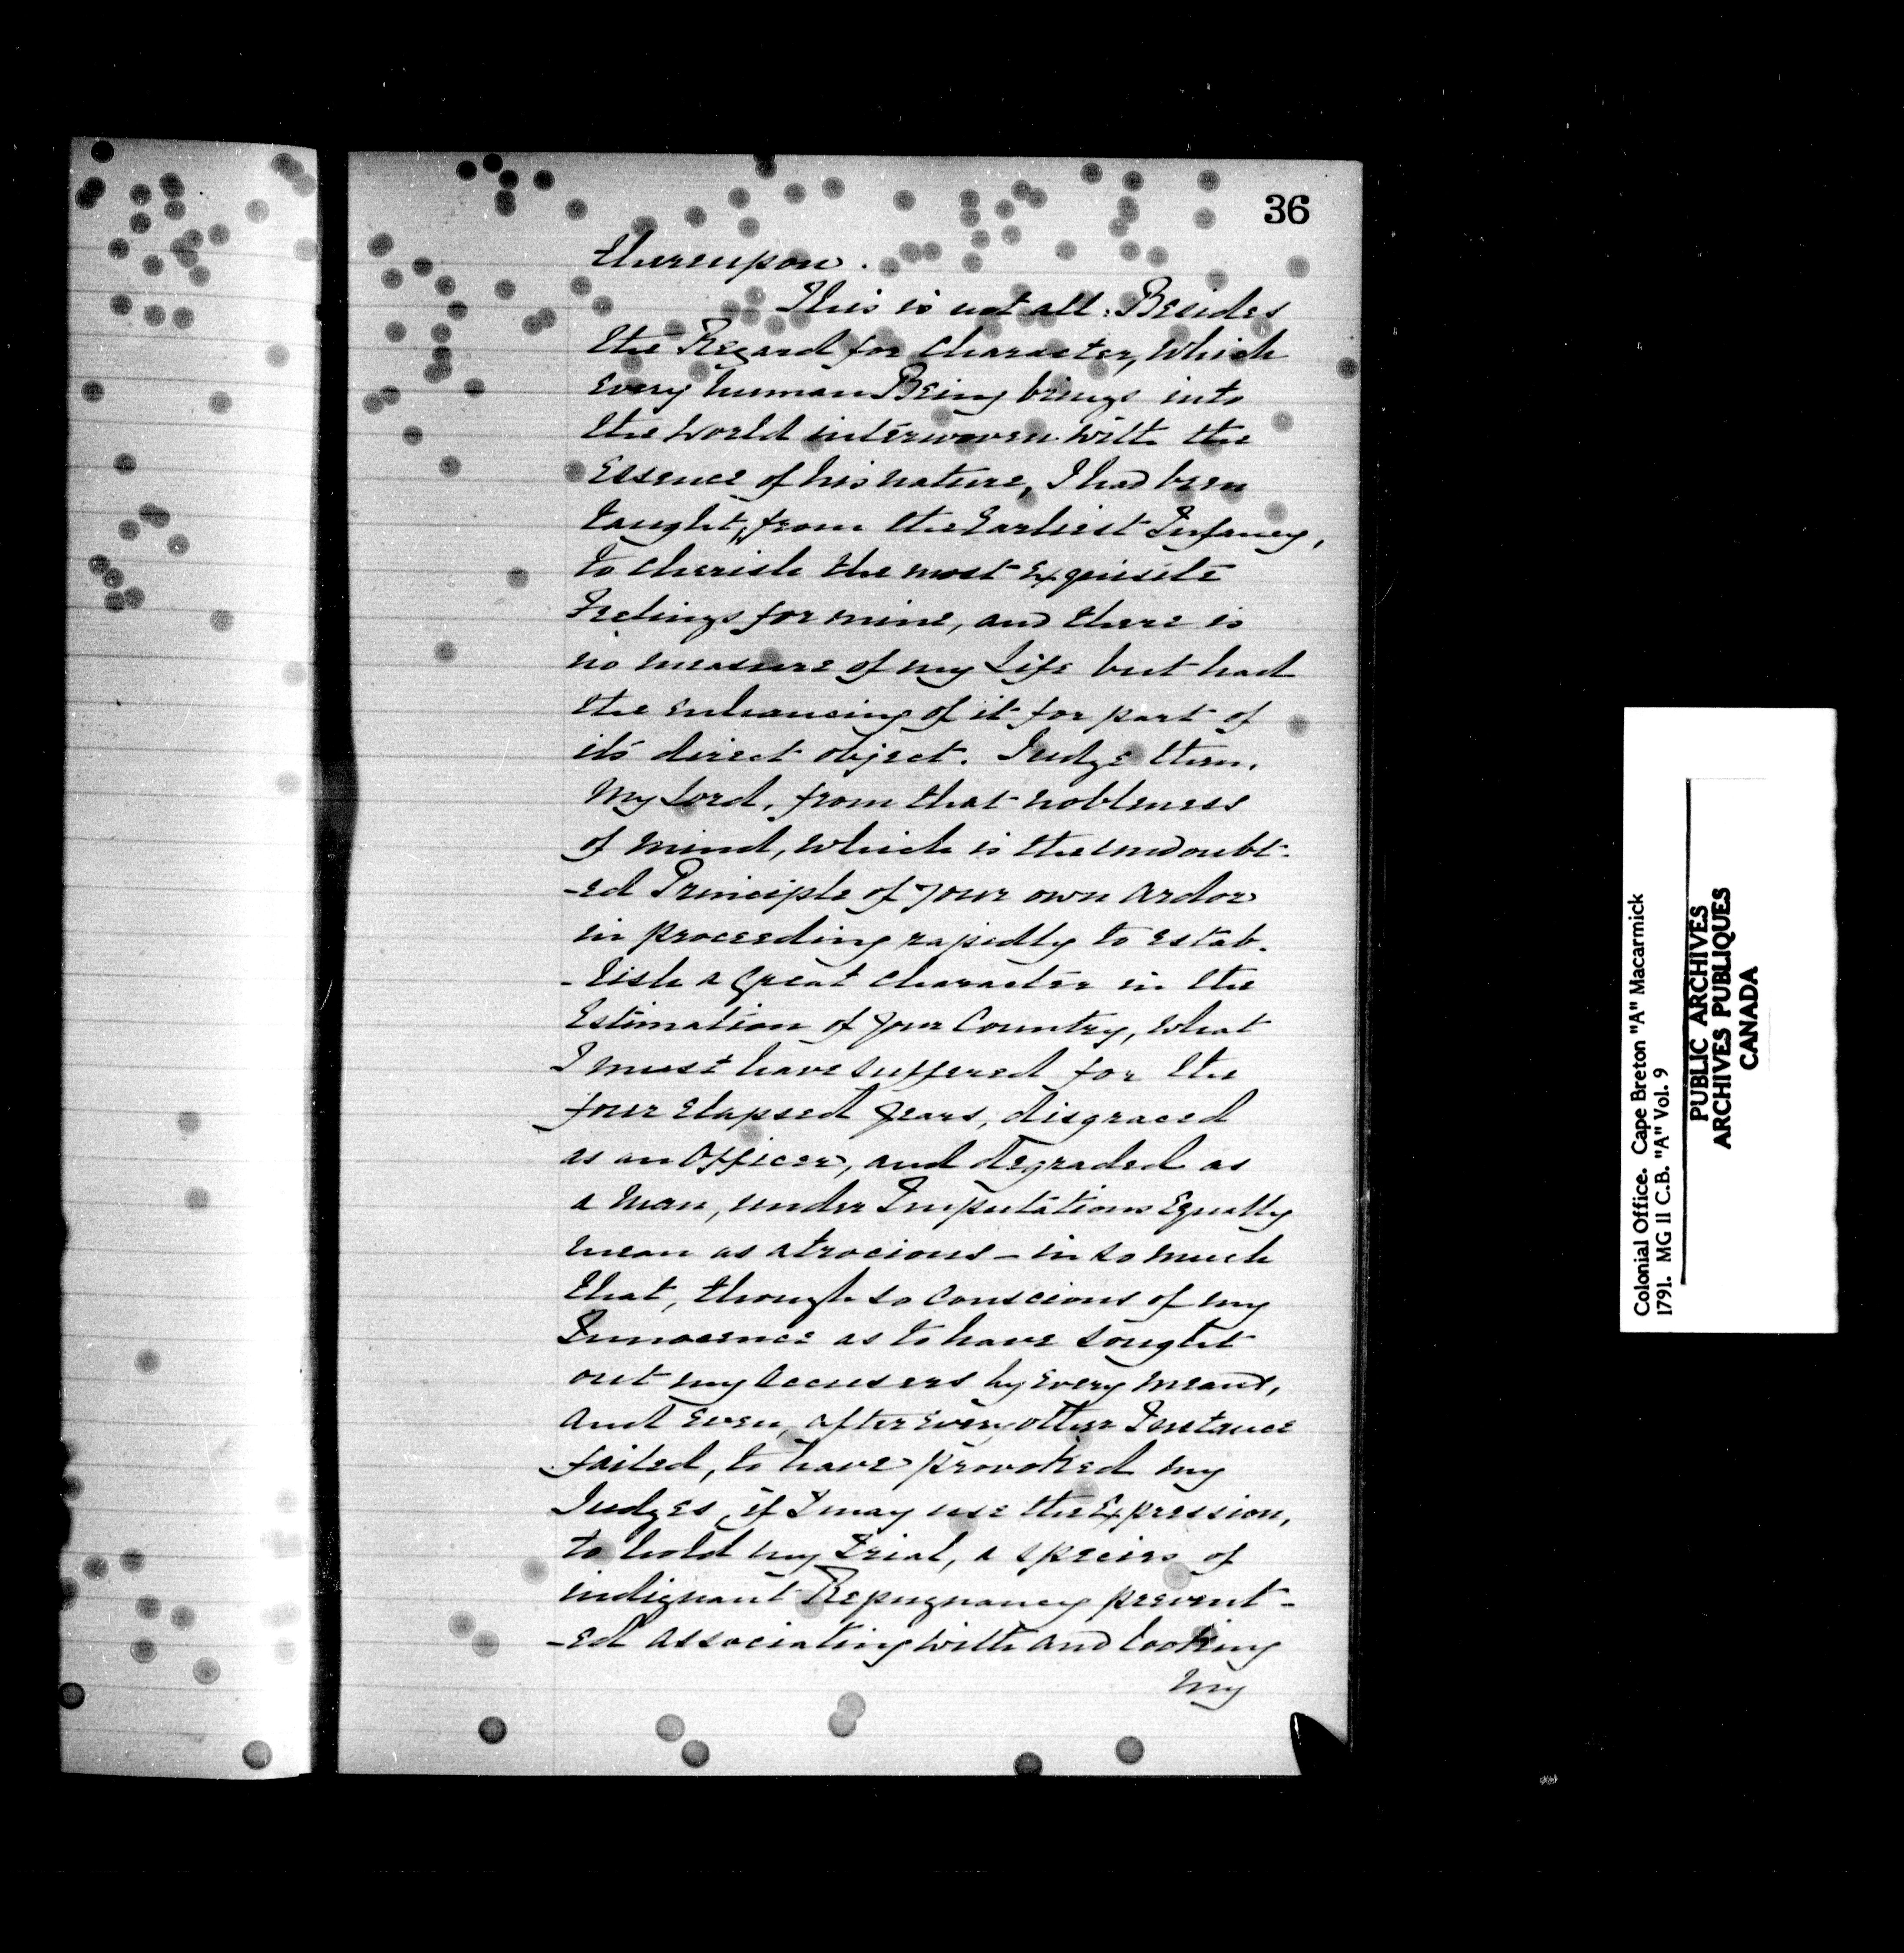 36
thereupon.
This is not all: Besides
the Regard for Character, Which
Every human Being brings into
the World interwoven With the
Essence of his nature, I had been
taught, from the Earliest Infancy,
to cherish the most Exquisite
Feelings for mine, and there is
no measure of my Life but had
the enhancing of it for part of
it's direct object. Judge then,
My Lord, from that nobleness
of Mind, which is the undoubt-
-ed Principle of your own Ardor
in proceeding rapidly to Estab-
-lish a great Character in the
Estimation of your Country, What
I must have suffered for the
four Elapsed years, disgraced
as an Officer, and degraded as
a Man, under Imputations Equally
mean as atrocious – in so much
that, though so Conscious of my
Innocence as to have sought
out my Accusers by Every means,
and even, after Every other Instance
failed, to have provoked my
Judges, if I may use the Expression,
to hold my Trial, a species of
indignant Repugnancy prevent-
-ed Associating With and looking
my
Colonial Office. Cape Breton "A" Macarmick
1791. MG 11 C.B. "A" Vol. 9
PUBLIC ARCHIVES
ARCHIVES PUBLIQUES
CANADA